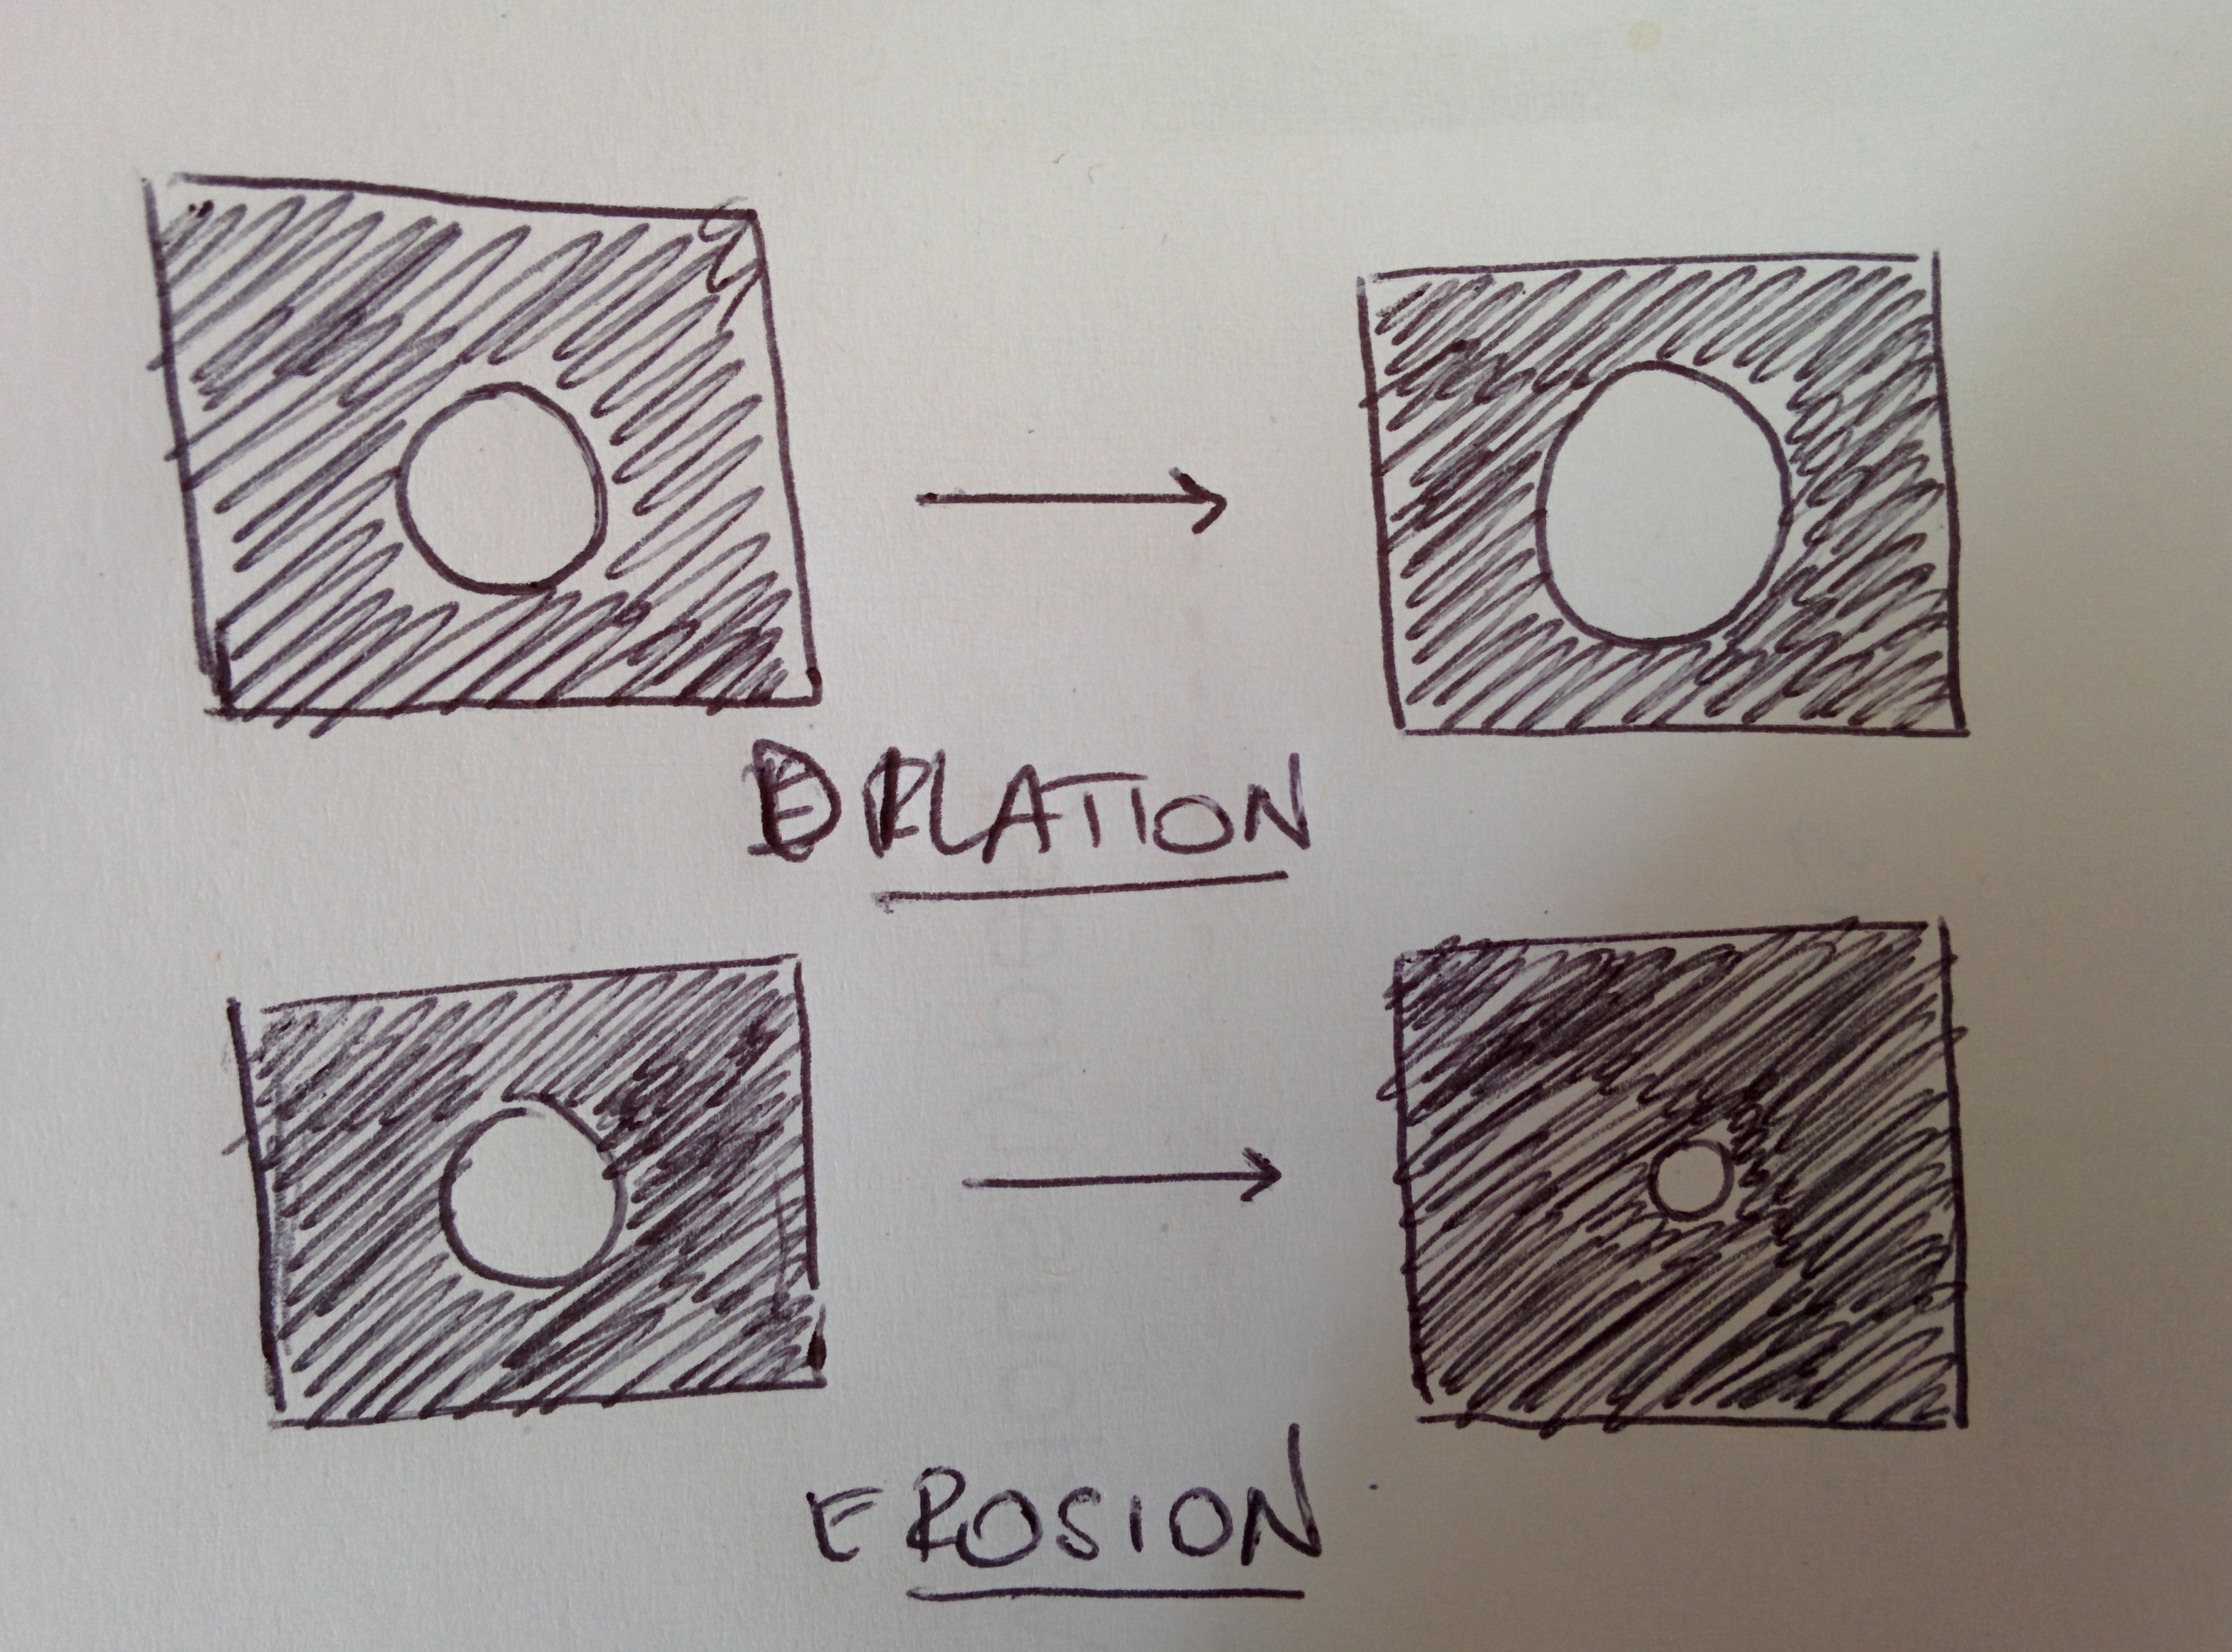 DILATION
EROSION